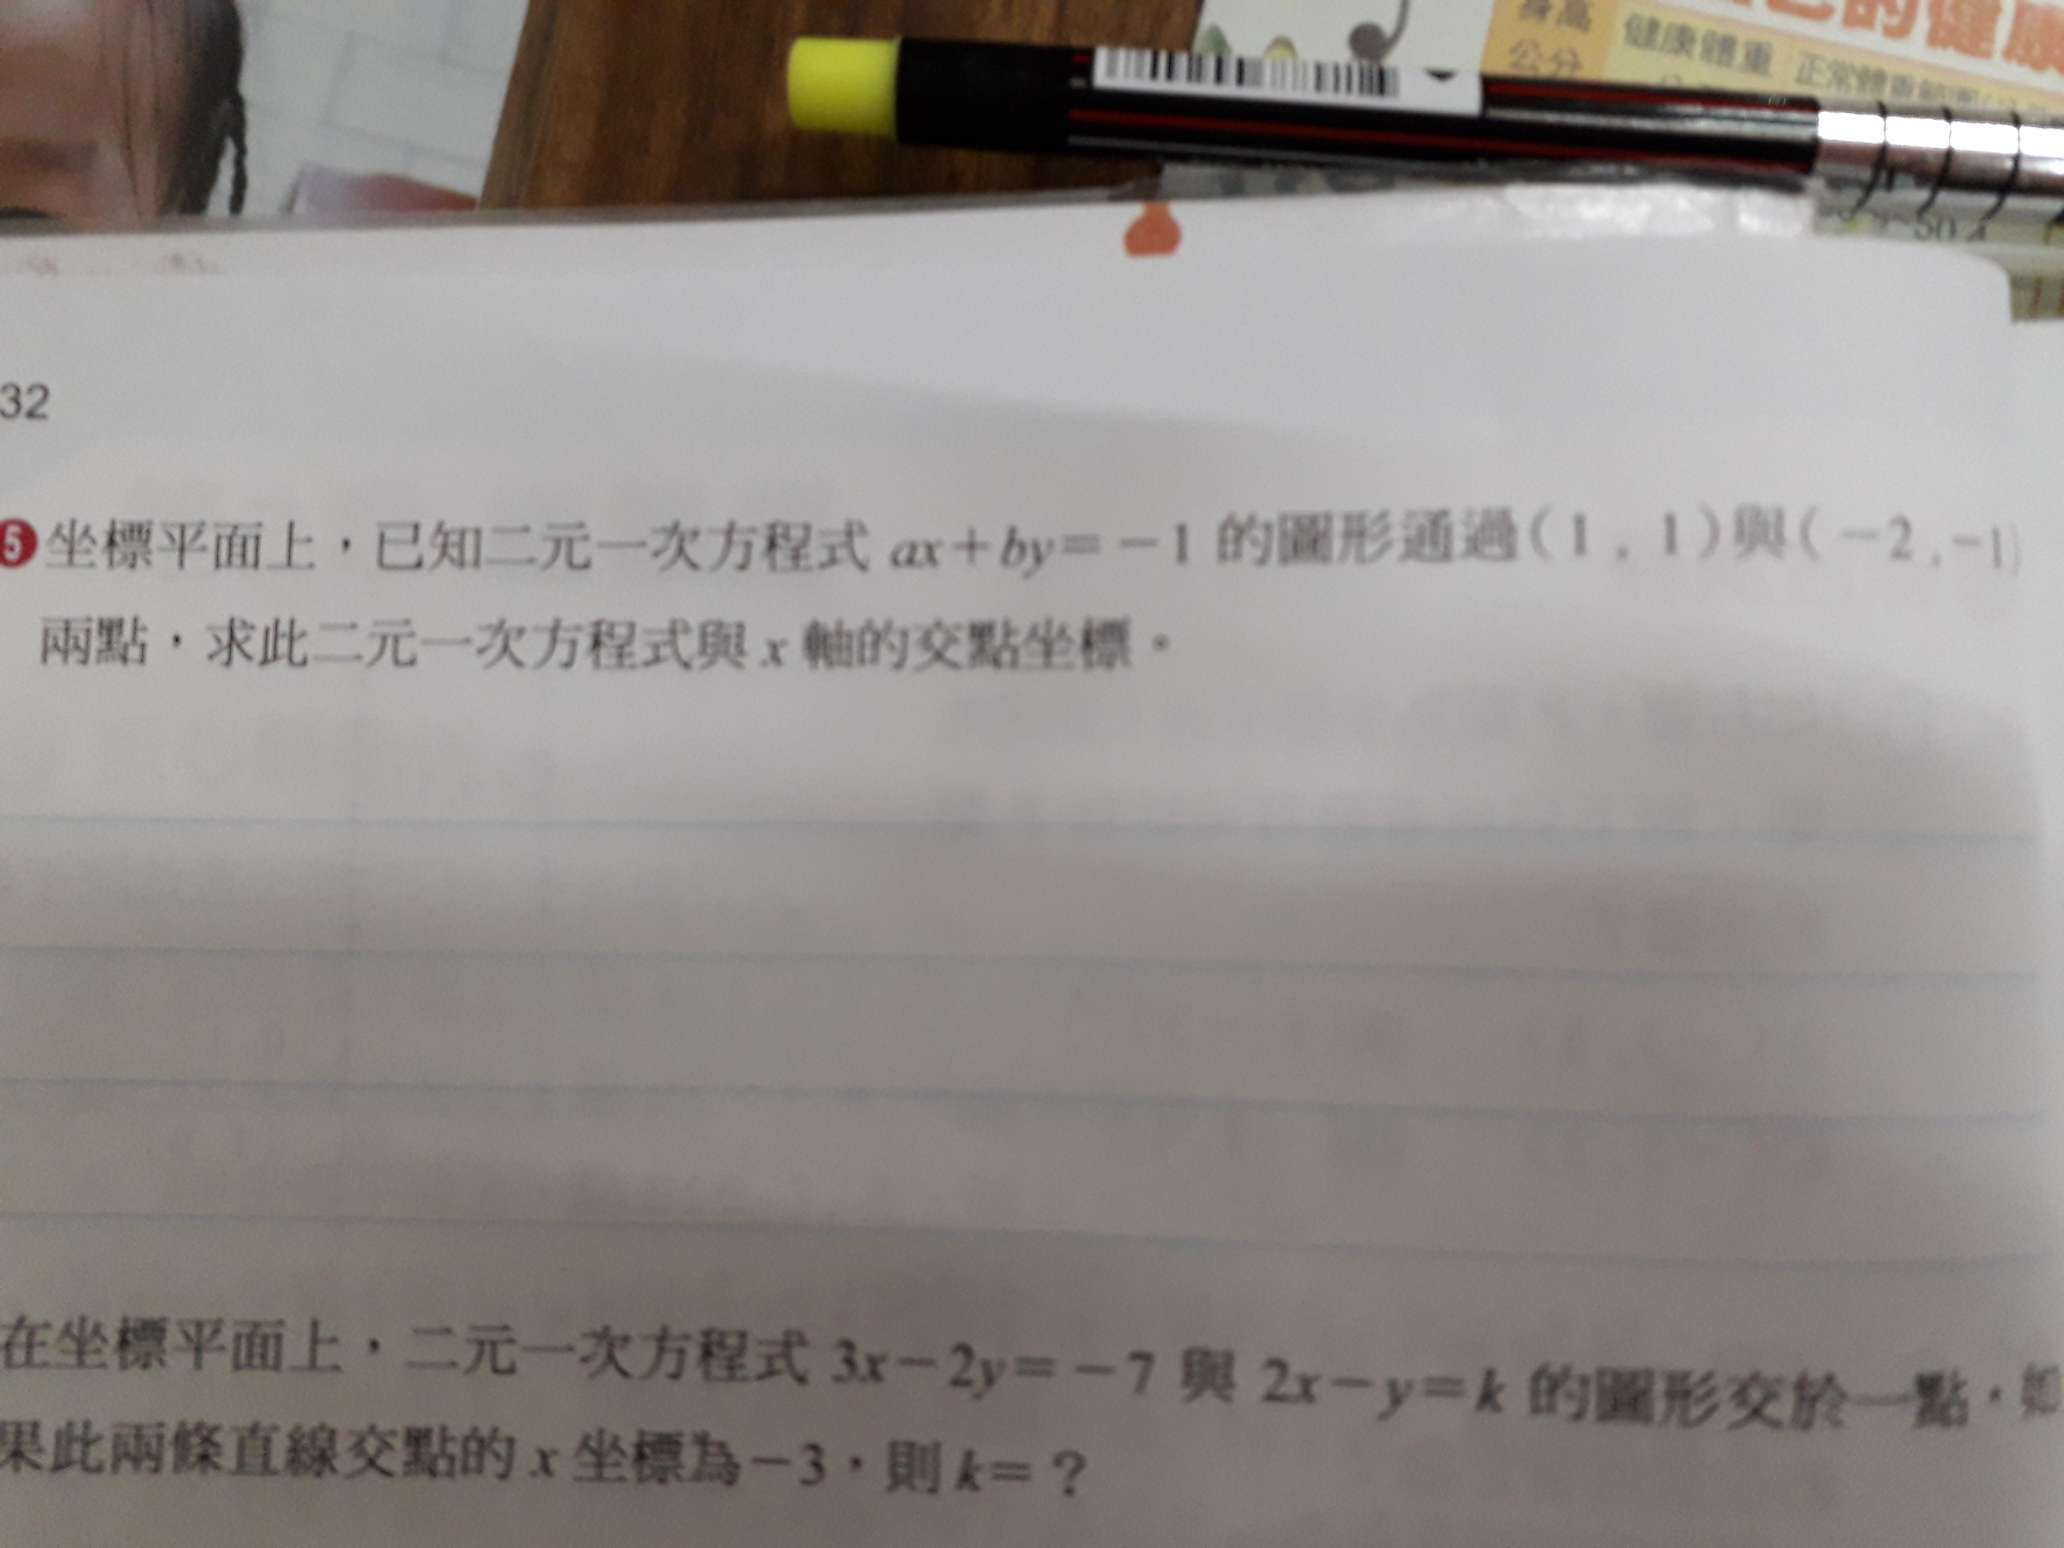 身高
公分
健康體重
的健康
32
5 坐標平面上，已知二元一次方程式 ax＋by＝－1 的圖形通過(1，1)與(－2,－1)
兩點，求此二元一次方程式與 x 軸的交點坐標。
在坐標平面上，二元一次方程式 3x－2y＝－7 與 2x－y＝k 的圖形交於一點，如
果此兩條直線交點的 x 坐標為－3，則 k＝？